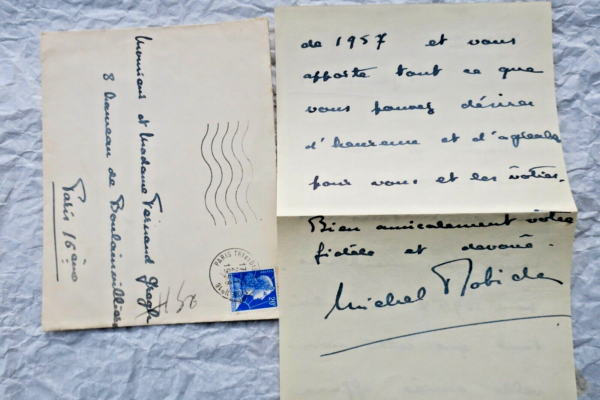 Monsieur et Madame Fernand Gregh
8 hameau de Boulainvilliers
Paris 16ème
de 1957 et vous
apporte tout ce que
vous pouvez désirer
d'heureux et d'agréable
pour vous et les vôtres.
Bien amicalement votre
fidèle et dévoué.
Michel
PARIS
20F